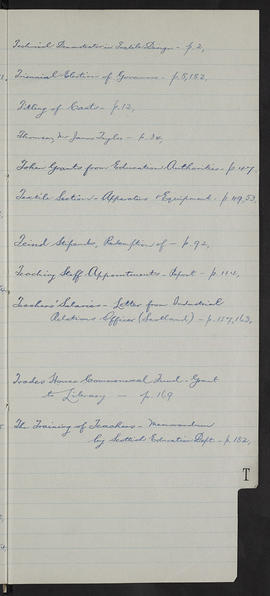 Technical Demonstrator in Textile Design - p. 2,
Triennial Election of Governors - p. 5, 152,
Titling of Casts - p. 12,
Thomson, Mr James Taylor - p. 34,
Token Grants from Education Authorities - p. 47.
Textile Section - Apparatus & Equipment - p. 49, 53,
Teind Stipends, Redemption of - p. 92,
Teaching Staff Appointments - Report - p. 114,
Teachers' Salaries - Letter from Industrial
Relations Officer (Scotland) - p. 157, 163,
Trades House Commercial Fund - Grant
to Library - p. 169
The Training of Teachers - Memorandum
by Scottish Education Dept. - p. 182,
T